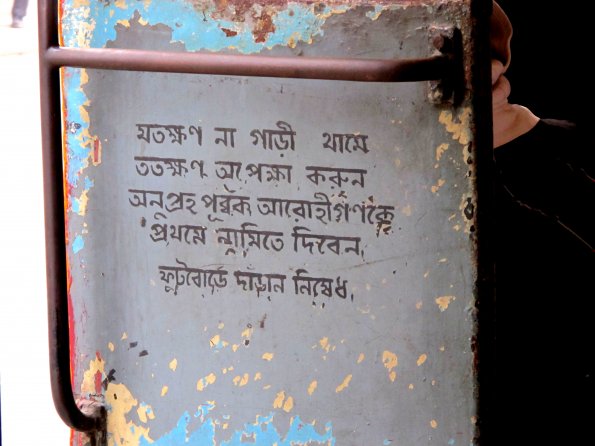 যতক্ষণ না গাড়ী থামে
ততক্ষণ অপেক্ষা করুন
অনুগ্রহ পূর্ব্বক আরোহীগণকে
প্রথমে নামিতে দিবেন,
ফুটবোর্ডে দাড়ান নিষেধ,